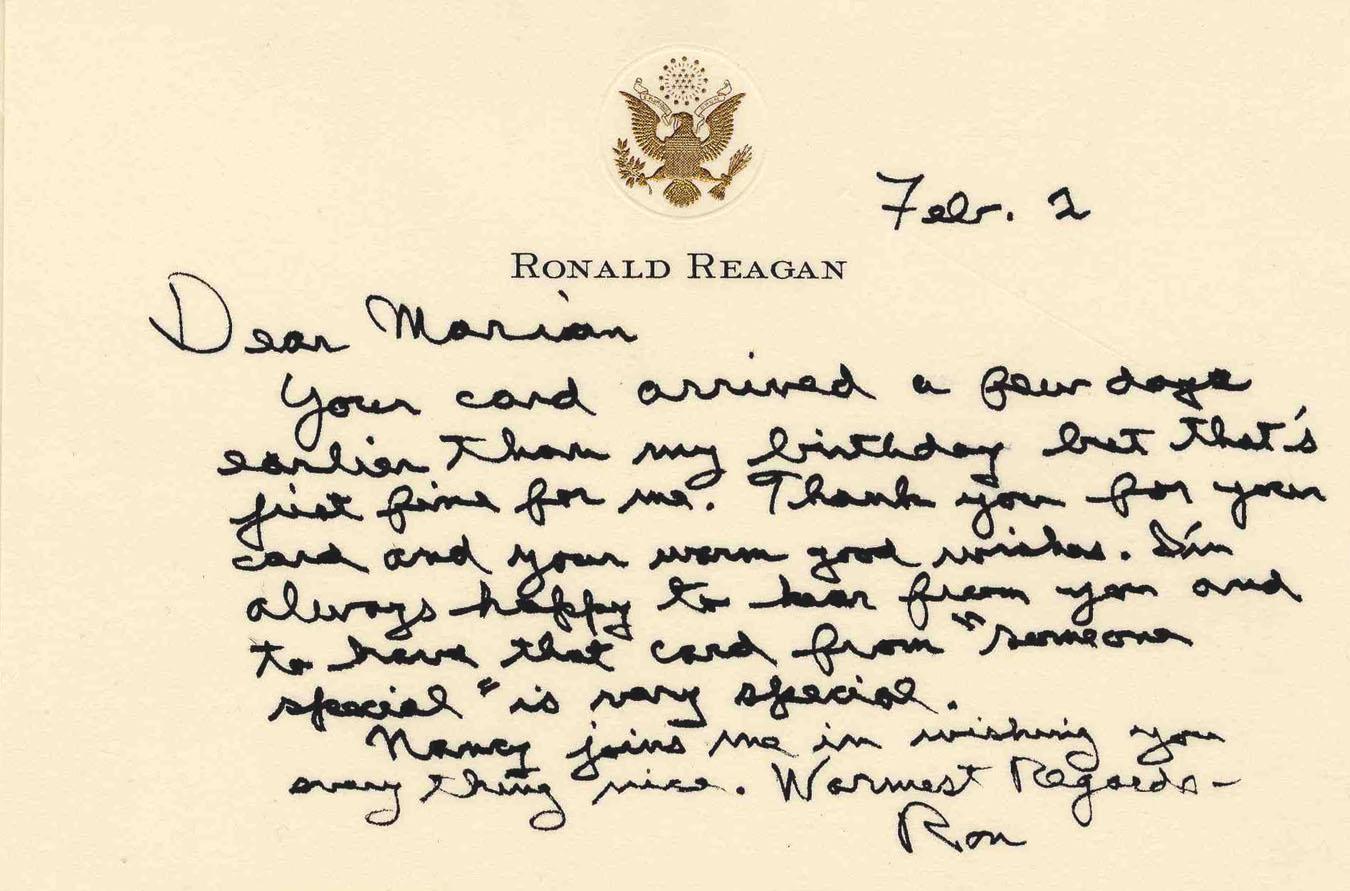 Febr. 2
RONALD REAGAN
Dear Marian
Your card arrived a few days
earlier than my birthday but that's
just fine for me. Thank you for your
card and your warm good wishes. I'm
always happy to hear from you and
to have that card from "someone
special" is very special.
Nancy joins me in wishing you
every thing nice. Warmest Regards-
Ron